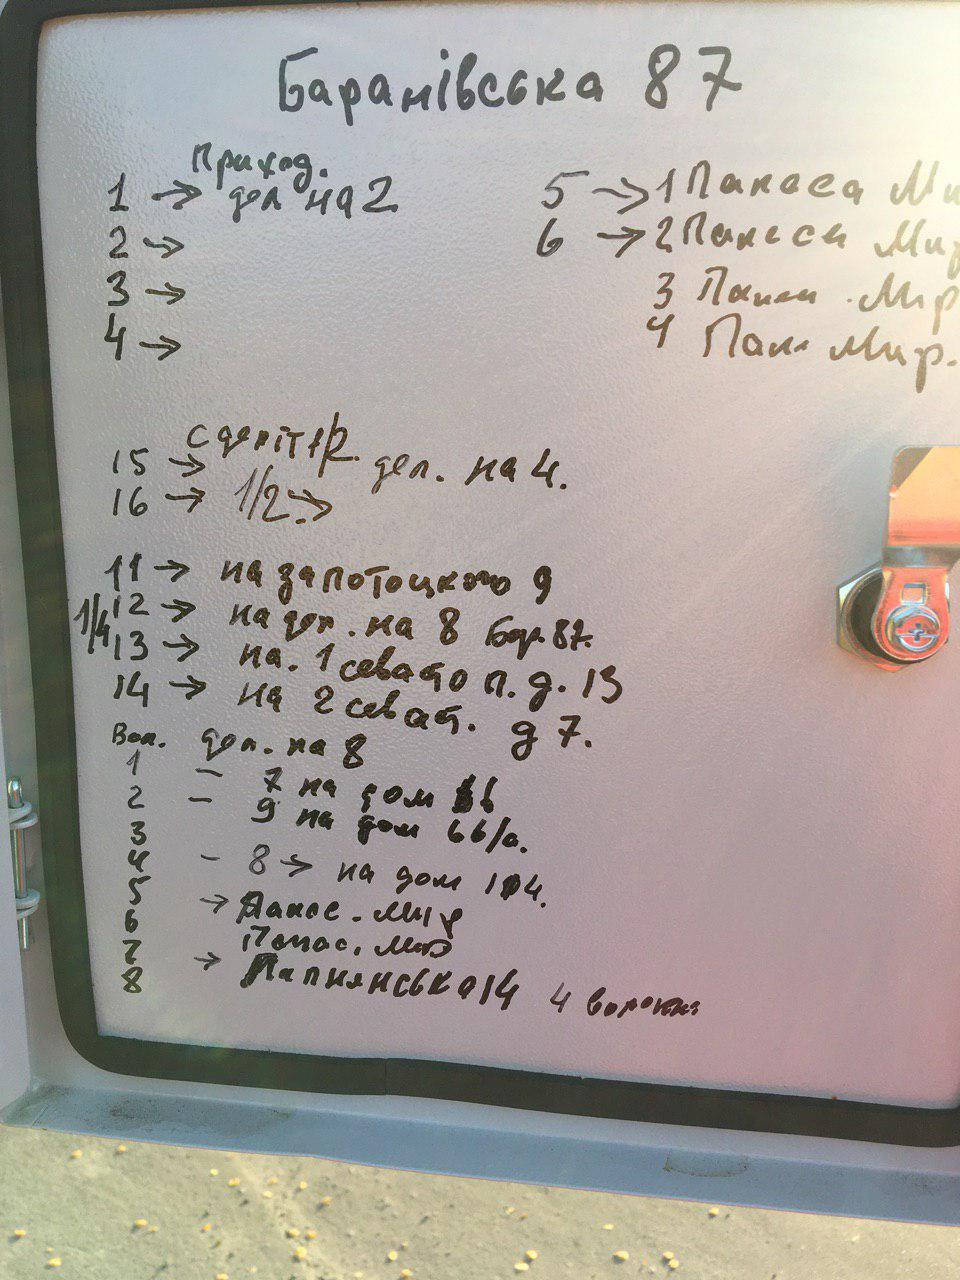 Баранівська 87
Приход.
1 → дел на 2
2 →
3 →
4 →
5 → 1 Панаса Ми
6 → 2 Панаса Мир
3 Мир
4 Пан Мир.
с деліт
15 → дел. на 4.
16 → 1/2 →
11 → на запотоцкого 9
1/4 12 → на дел. на 8 Бар. 87.
13 → на. 1 севастоп. д. 13
14 → на 2 севаст. д 7.
Вол. дел. на 8
1 - 7 на дом
2 - 9 на дом 66/а.
3
4 - 8 → на дом 104.
5
6 → Панас. Мир
7 Панас. Мир
8 → 14 4 волокна